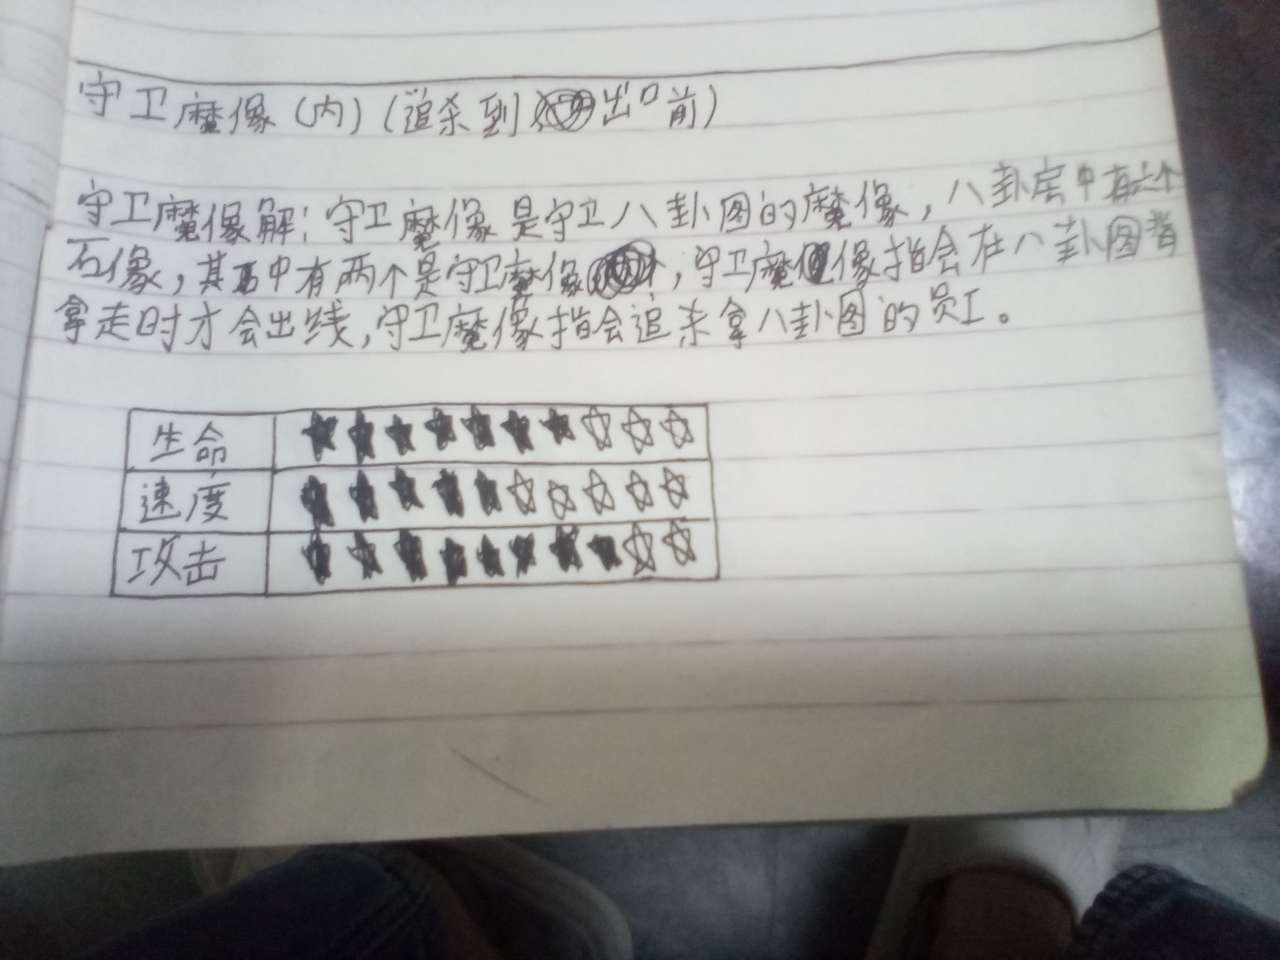 守卫魔像(内)(追杀到出口前)
守卫魔像解:守卫魔像是守卫八卦图的魔像,八卦房中有六个
石像,其中有两个是守卫魔像,守卫魔像指会在八卦图着
拿走时才会出线,守卫魔像指会追杀拿八卦图的员工。
生命 ★★★★★★★☆☆☆
速度 ★★★★★☆☆☆☆☆
攻击 ★★★★★★★★☆☆